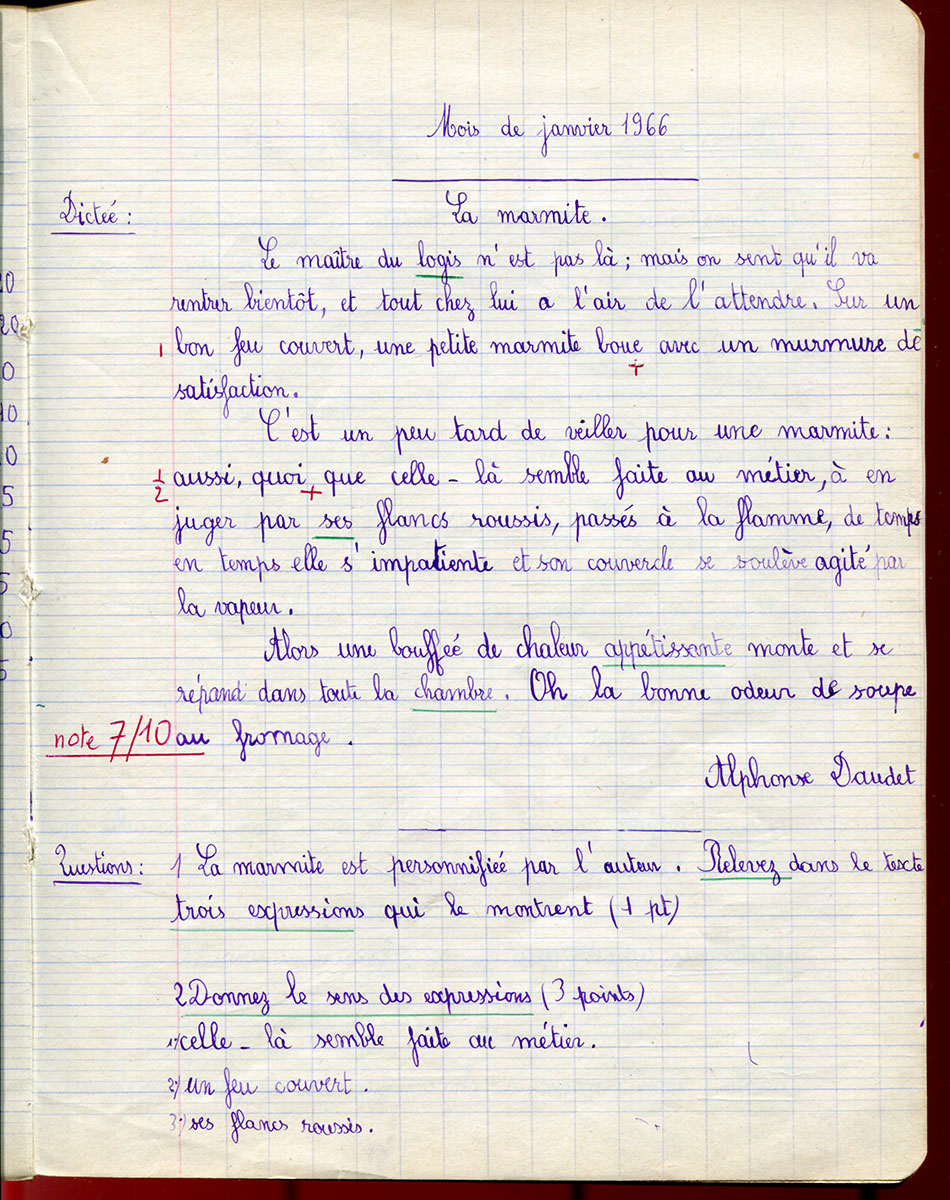 Mois de janvier 1966
Dicteé :
La marmite.
Le maître du logis n'est pas là ; mais on sent qu'il va
rentrer bientôt, et tout chez lui a l'air de l'attendre. Sur un
1 bon feu couvert, une petite marmite boue avec un murmure de
satisfaction.
C'est un peu tard de veiller pour une marmite :
1/2 aussi, quoi que celle-là semble faite au métier, à en
juger par ses flancs roussis, passés à la flamme, de temps
en temps elle s'impatiente et son couvercle se soulève agité par
la vapeur.
Alors une bouffeé de chaleur appétissante monte et se
répand dans toute la chambre. Oh la bonne odeur de soupe
note 7/10 au fromage.
Alphonse Daudet
Questions : 1 La marmite est personnifieé par l'auteur. Relevez dans le texte
trois expressions qui le montrent (1 pt)
2 Donnez le sens des expressions (3 points)
1°) celle-là semble faite au métier.
2°) un feu couvert.
3°) ses flancs roussis.